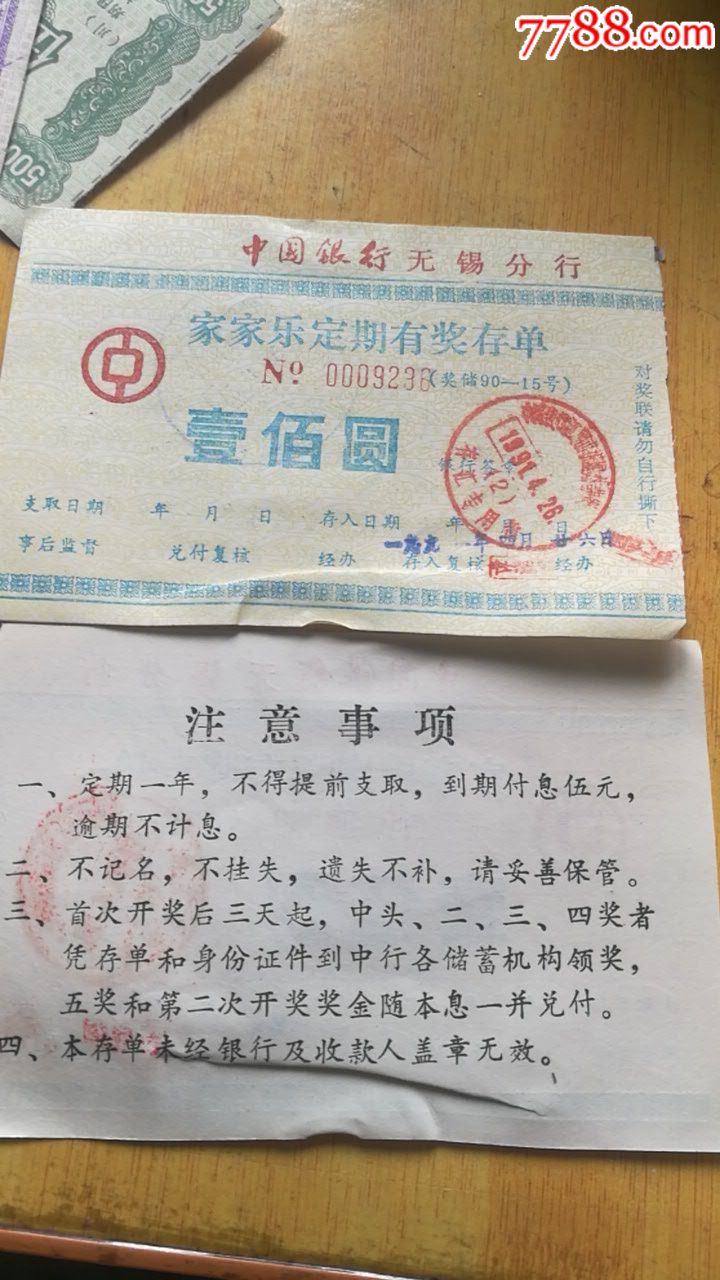 7788.com
500
中国银行无锡分行
家家乐定期有奖存单
Nº 0009236(奖储90—15号)
壹佰圆
银行签章
1991.4.26
(2)
专用
对奖联请勿自行撕下
支取日期 年 月 日 存入日期 年 月 日
一九九一年四月廿六日
事后监督 兑付复核 经办 存入复核 经办
注意事项
一、定期一年，不得提前支取，到期付息伍元，
逾期不计息。
二、不记名，不挂失，遗失不补，请妥善保管。
三、首次开奖后三天起，中头、二、三、四奖者
凭存单和身份证件到中行各储蓄机构领奖，
五奖和第二次开奖奖金随本息一并兑付。
四、本存单未经银行及收款人盖章无效。